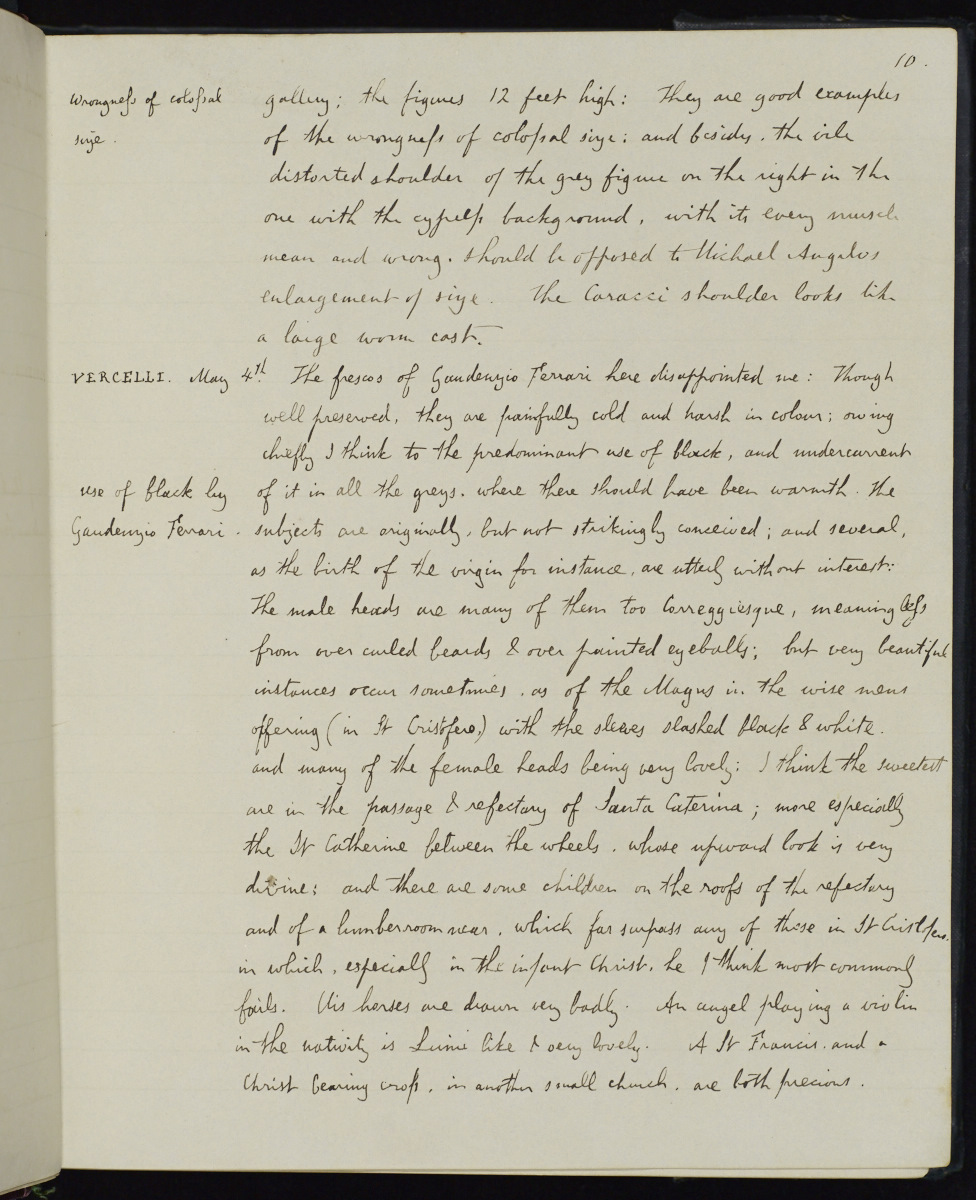 10.
Wrongness of colossal
size.
gallery; the figures 12 feet high: They are good examples
of the wrongness of colossal size; and besides, the vile
distorted shoulder of the grey figure on the right in the
one with the cypress background, with its every muscle
mean and wrong. should be opposed to Michael Angelos
enlargement of size. The Caracci shoulder looks like
a large worm cast.
VERCELLI. May 4th. The frescos of Gaudenzio Ferrari here disappointed me: Though
well preserved, they are painfully cold and harsh in colour; owing
chiefly I think to the predominant use of black, and undercurrent
use of black by
Gaudenzio Ferrari.
of it in all the greys. where there should have been warmth. The
subjects are originally, but not strikingly conceived; and several,
as the birth of the virgin for instance, are utterly without interest:
The male heads are many of them too Correggiesque, meaningless
from over curled beards & over painted eyeballs; but very beautiful
instances occur sometimes, as of the Magus in the wise mens
offering (in St Cristofero,) with the sleeves slashed black & white.
and many of the female heads being very lovely: I think the sweetest
are in the passage & refectory of Santa Caterina; more especially
the St Catherine between the wheels, whose upward look is very
divine; and there are some children on the roofs of the refectory
and of a lumberroom near, which far surpass any of those in St Cristofero.
in which, especially in the infant Christ, he I think most commonly
fails. His horses are drawn very badly. An angel playing a violin
in the nativity is Luini like & very lovely. A St Francis, and a
Christ bearing cross, in another small church, are both precious.